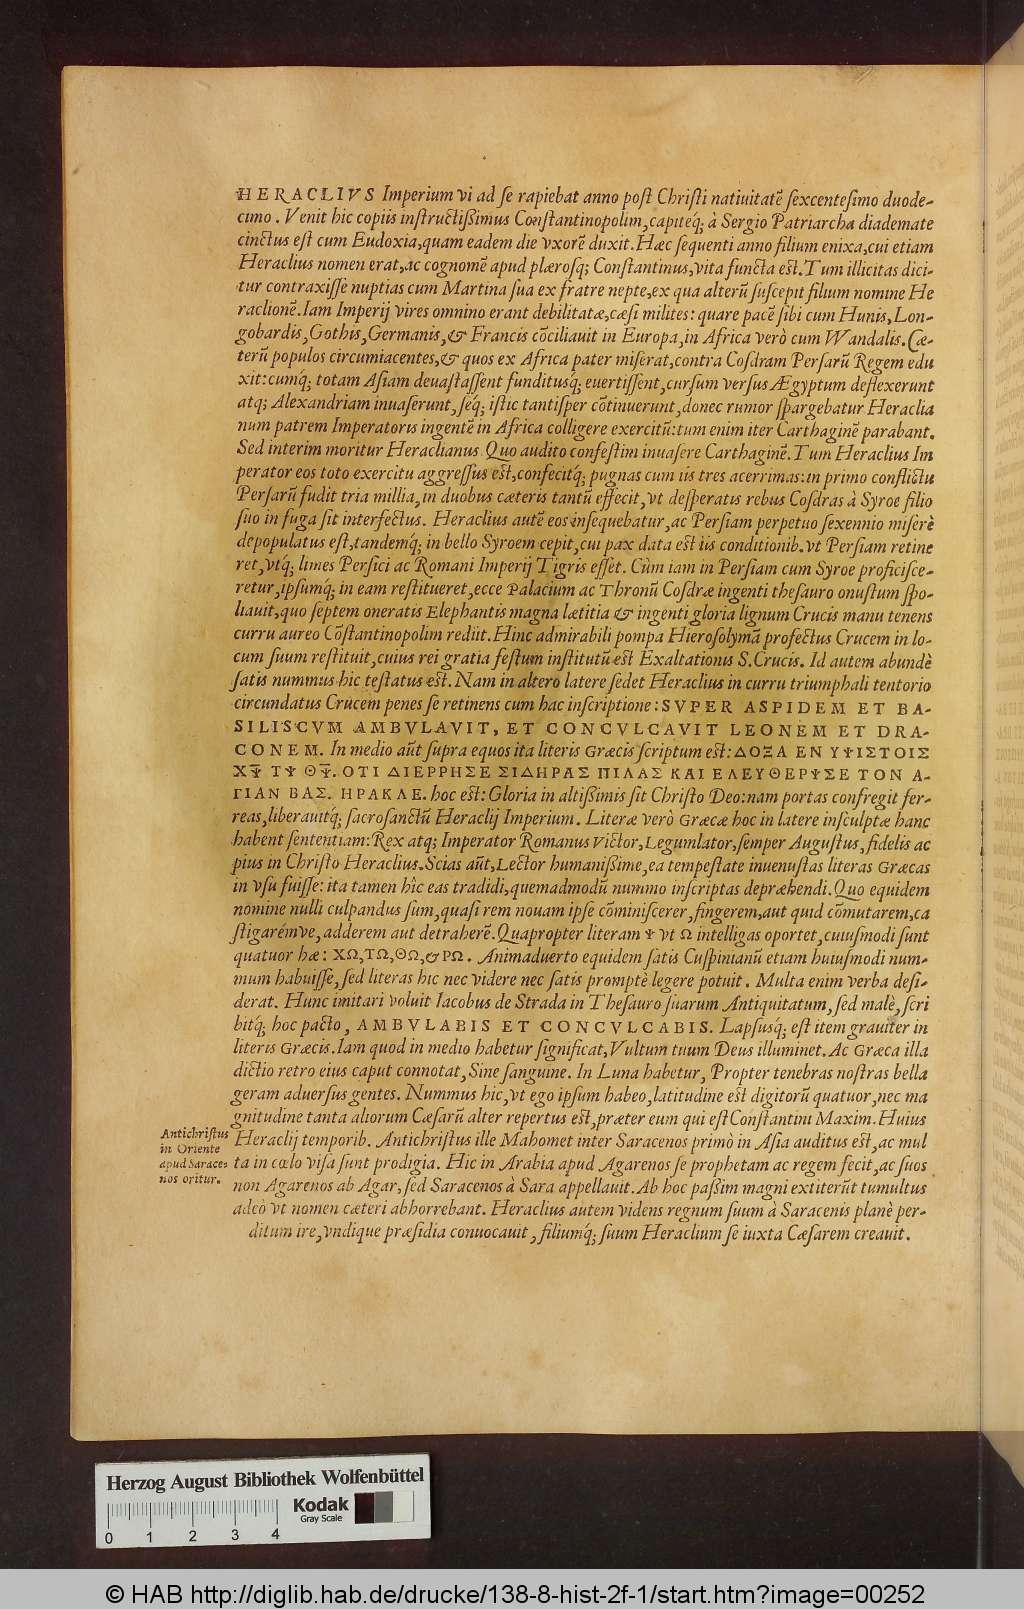 HERACLIVS Imperium vi ad ſe rapiebat anno poſt Chriſti natiuitatē ſexcenteſimo duode-
cimo. Venit hic copiis inſtructißimus Conſtantinopolim, capiteq́; à Sergio Patriarcha diademate
cinctus eſt cum Eudoxia, quam eadem die vxorē duxit. Hæc ſequenti anno filium enixa, cui etiam
Heraclius nomen erat, ac cognomē apud plæroſq; Conſtantinus, vita functa est. Tum illicitas dici-
tur contraxiſſe nuptias cum Martina ſua ex fratre nepte, ex qua alterū ſuſcepit filium nomine He
raclionē. Iam Imperij vires omnino erant debilitatæ, cæſi milites: quare pacē ſibi cum Hunis, Lon-
gobardis, Gothis, Germanis, & Francis cōciliauit in Europa, in Africa verò cum Wandalis. Cæ-
terū populos circumiacentes, & quos ex Africa pater miſerat, contra Coſdram Perſarū Regem edu
xit: cumq́; totam Aſiam deuaſtaſſent funditusq́; euertiſſent, curſum verſus Ægyptum deflexerunt
atq; Alexandriam inuaſerunt, ſeq́; iſtic tantiſper cōtinuerunt, donec rumor ſpargebatur Heraclia
num patrem Imperatoris ingentē in Africa colligere exercitū: tum enim iter Carthaginē parabant.
Sed interim moritur Heraclianus. Quo audito confeſtim inuaſere Carthaginē. Tum Heraclius Im
perator eos toto exercitu aggreſſus est, confecitq́; pugnas cum iis tres acerrimas: in primo conflictu
Perſarū fudit tria millia, in duobus cæteris tantū effecit, vt deſperatis rebus Coſdras à Syroe filio
ſuo in fuga ſit interfectus. Heraclius autē eos inſequebatur, ac Perſiam perpetuo ſexennio miſerè
depopulatus eſt, tandemq́; in bello Syroem cepit, cui pax data est iis conditionib. vt Perſiam retine
ret, vtq́; limes Perſici ac Romani Imperij Tigris eſſet. Cùm iam in Perſiam cum Syroe proficiſce-
retur, ipſumq́; in eam reſtitueret, ecce Palacium ac Thronū Coſdræ ingenti theſauro onuſtum ſpo-
liauit, quo ſeptem oneratis Elephantis magna lætitia & ingenti gloria lignum Crucis manu tenens
curru aureo Cōſtantinopolim rediit. Hinc admirabili pompa Hieroſolymā profectus Crucem in lo-
cum ſuum reſtituit, cuius rei gratia feſtum inſtitutū est Exaltationis S. Crucis. Id autem abundè
ſatis nummus hic teſtatus est. Nam in altero latere ſedet Heraclius in curru triumphali tentorio
circundatus Crucem penes ſe retinens cum hac inſcriptione: SVPER ASPIDEM ET BA-
SILISCVM AMBVLAVIT, ET CONCVLCAVIT LEONEM ET DRA-
CONEM. In medio aūt ſupra equos ita literis Græcis ſcriptum est: ΔΟΞΑ ΕΝ ΥΨΙΣΤΟΙΣ
ΧΨ̅ ΤΨ ΘΨ̅. ΟΤΙ ΔΙΕΡΡΗΣΕ ΣΙΔΗΡΑΣ ΠΙΛΑΣ ΚΑΙ ΕΛΕΥΘΕΡΨΣΕ ΤΟΝ Α-
ΓΙΑΝ ΒΑΣ. ΗΡΑΚΛΕ. hoc est: Gloria in altißimis ſit Chriſto Deo: nam portas confregit fer-
reas, liberauitq́; ſacroſanctū Heraclij Imperium. Literæ verò Græcæ hoc in latere inſculptæ hanc
habent ſententiam: Rex atq; Imperator Romanus Victor, Legumlator, ſemper Auguſtus, fidelis ac
pius in Chriſto Heraclius. Scias aūt, Lector humanißime, ea tempeſtate inuenuſtas literas Græcas
in vſu fuiſſe: ita tamen hîc eas tradidi, quemadmodū nummo inſcriptas depræhendi. Quo equidem
nomine nulli culpandus ſum, quaſi rem nouam ipſe cōminiſcerer, fingerem, aut quid cōmutarem, ca
ſtigarémve, adderem aut detraherē. Quapropter literam Ψ vt Ω intelligas oportet, cuiuſmodi ſunt
quatuor hæ: ΧΩ, ΤΩ, ΘΩ, & ΡΩ. Animaduerto equidem ſatis Cuſpinianū etiam huiuſmodi num-
mum habuiſſe, ſed literas hic nec videre nec ſatis promptè legere potuit. Multa enim verba deſi-
derat. Hunc imitari voluit Iacobus de Strada in Theſauro ſuarum Antiquitatum, ſed malè, ſcri
bitq́; hoc pacto, AMBVLABIS ET CONCVLCABIS. Lapſusq́; eſt item grauiter in
literis Græcis. Iam quod in medio habetur ſignificat, Vultum tuum Deus illuminet. Ac Græca illa
dictio retro eius caput connotat, Sine ſanguine. In Luna habetur, Propter tenebras noſtras bella
geram aduerſus gentes. Nummus hic, vt ego ipſum habeo, latitudine est digitorū quatuor, nec ma
gnitudine tanta aliorum Cæſarū alter repertus est, præter eum qui eſt Conſtantini Maxim. Huius
Heraclij temporib. Antichriſtus ille Mahomet inter Saracenos primò in Aſia auditus est, ac mul
ta in cœlo viſa ſunt prodigia. Hic in Arabia apud Agarenos ſe prophetam ac regem fecit, ac ſuos
non Agarenos ab Agar, ſed Saracenos à Sara appellauit. Ab hoc paßim magni extiterūt tumultus
adeò vt nomen cæteri abhorrebant. Heraclius autem videns regnum ſuum à Saracenis planè per-
ditum ire, vndique præſidia conuocauit, filiumq́; ſuum Heraclium ſe iuxta Cæſarem creauit.
Antichriſtus
in Oriente
apud Sarace-
nos oritur.
Herzog August Bibliothek Wolfenbüttel
Kodak
Gray Scale
0 1 2 3 4
© HAB http://diglib.hab.de/drucke/138-8-hist-2f-1/start.htm?image=00252